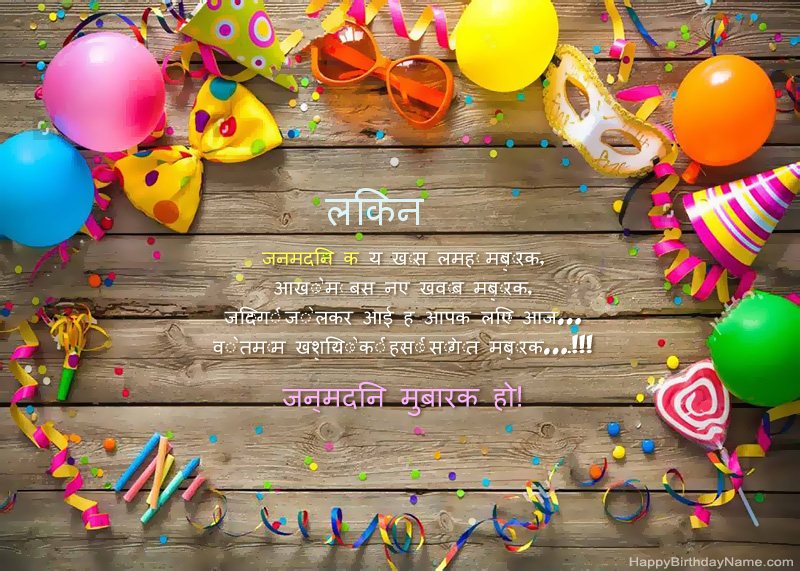 लकिन
जनमदनि क य खास लमहा मबारक,
आखों में बस नए खवाब मबारक,
जदिगी जो लेकर आई ह आपक लएि आज...
वो तमाम खशयिों की हसीं सौगात मबारक...!!!
जन्मदनि मुबारक हो!
HappyBirthdayName.com